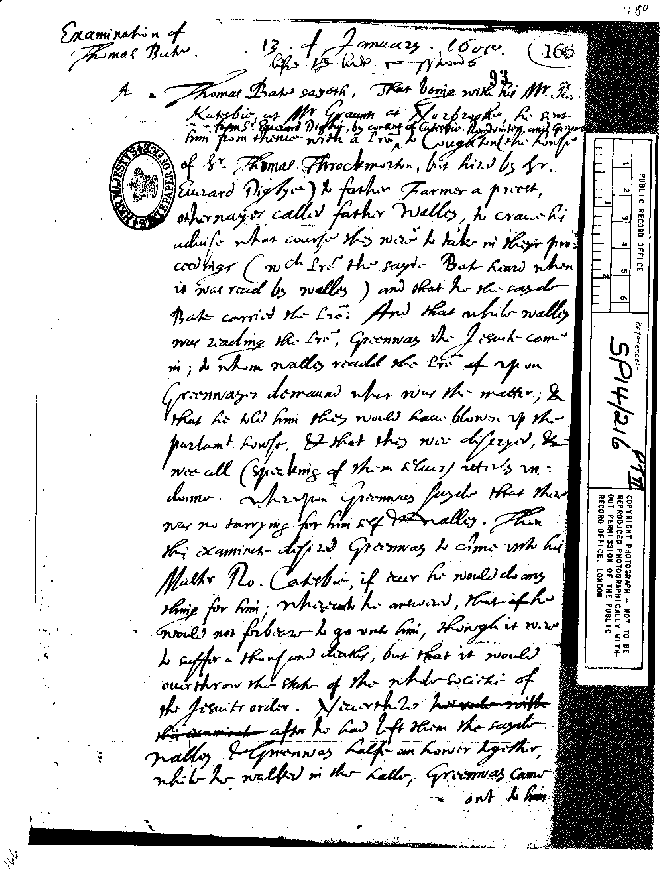 Examination of
Thomas Bate
13 of January. 1605.
166
93
A
Thomas Bate sayeth, That being with his Mr. Ro.
Katesbie at Mr Graunts at Norbrooke, he sent
from Sr. Everard Digby, by consent of Catesbie
him from thence with a Lre, to Coughton (the house
of Sr. Thomas Throckmorton, but hired by Sr.
Euerard Digbye) to father Farmer a priest,
otherwayes called father Walley, to craue his
aduise what course they were to take in their pro
ceedings (wch Lre the sayde Bat heard when
it was read by walley) and that he the sayde
Bate carried the Lre. And that while walley
was reading the Lre, Greenway the Jesuite came
in; to whom walley reade the Lre of upon
Greenwayes demaund what was the matter; &
that he told him they would haue blowen up the
parlamt house, & that they were discryed, &
wee all (speaking of them selues) utterly un-
donne. wherupon Greenway sayde that there
was no tarrying for him self & walley. Then
this examinate desired Greenway to come unto his
Master Ro. Catesbie, if euer he would do any
thing for him; whereunto he answered, that he
would not forbeare to go unto him, though it were
to suffer a thousand deathes, but that it would
ouerthrow the state of the whole societie of
the Jesuits order.
after he had left them the sayde
walley & Greenway halfe an hower together,
while he walked in the halle, Greenway came
out to him
PUBLIC RECORD OFFICE
1 2 3 4 5 6
Reference:-
SP14/216 PT II
COPYRIGHT PHOTOGRAPH - NOT TO BE
REPRODUCED PHOTOGRAPHICALLY WITH-
OUT PERMISSION OF THE PUBLIC
RECORD OFFICE, LONDON